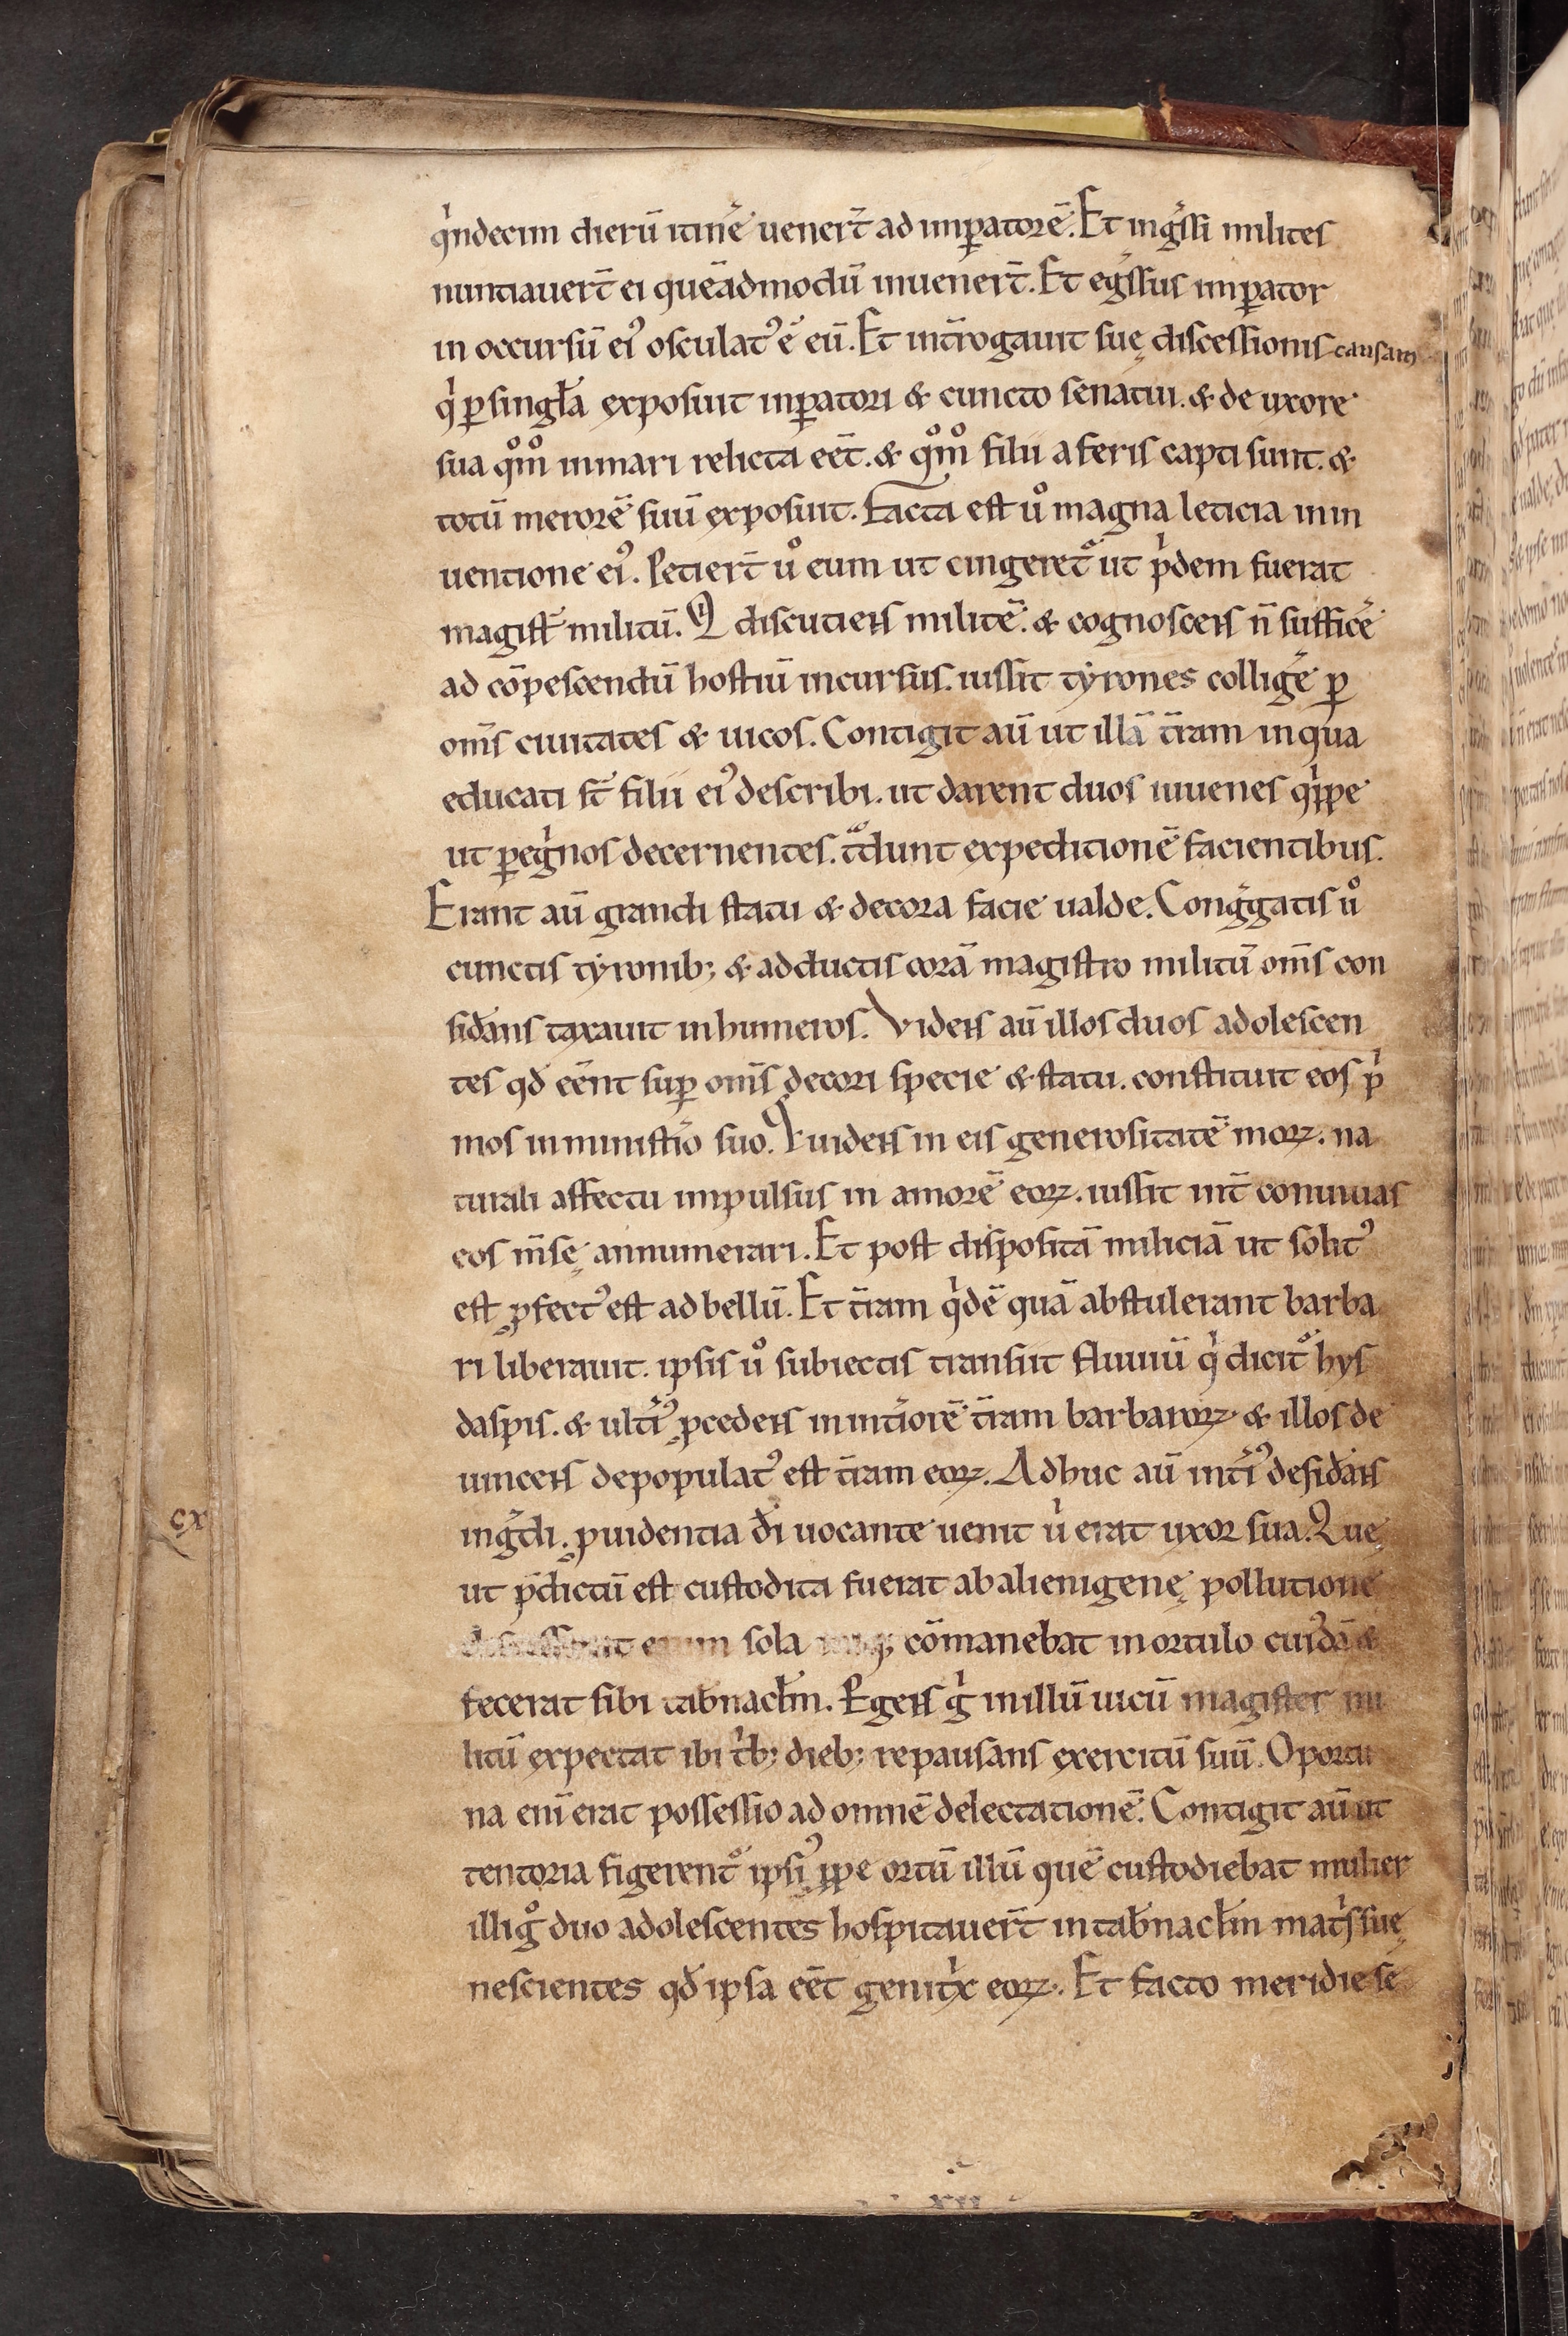 qͥndecim dierū itinē uenert̄ ad imꝑatorē. Et ingͤssi milites
nuntiauert̄ ei quēadmodū inuenert̄. Et egͤssus imꝑator
in occursū eiꝰ osculatꝰ ē eū. Et int̄rogauit suę discessionis causam
qͥ ꝑ singƚa exposuit inꝑatori & cuncto senatui. & de uxore
sua qͦm̊ in mari relicta eēt. & qͦm̊ filii a feris capti sunt. &
totū merorē suū exposuit. Facta est uͦ magna leticia in in
uentione eiꝰ. Petiert̄ uͦ eum ut cingeret᷑ ut pͥdem fuerat
magist̄ militū. Qͥ discutiens militē. & cognoscens n̄ sufficē
ad cōpescendū hostiū incursus. iussit tyrones colligē ꝑ
om̄s ciuitates & uicos. Contigit aū ut illā t̄ram in qua
educati st̄ filii eiꝰ describi. ut darent duos iuuenes qͥppe
ut ꝑegͥnos decernentes. t᷑dunt expeditionē facientibus.
Erant aū grandi statu & decora facie ualde. Congͤgatis uͦ
cunctis tyronib; & adductis corā magistro militū om̄s con
sid̄ans taxauit in humeros. Videns aū illos duos adolescen
tes qđ eēnt suꝑ om̄s decori specie & statu. constituit eos pͥ
mos in ministīo suo. Qͥ uidens in eis generositatē morꝝ. na
turali affectu impulsus in amorē eorꝝ. iussit int̄ conuiuas
eos m̄sę annumerari. Et post dispositā miliciā ut solitꝰ
est ꝓfectꝰ est ad bellū. Et t̄ram qͥdē quā abstulerant barba
ri liberauit. ipsis uͦ subiectis transiit fluuiū qͥ dicit᷑ hys
daspis. & ult̄iꝰ ꝓcedens in int̄iorē t̄ram barbarorꝝ & illos de
uincens depopulatꝰ est t̄ram eorꝝ. Adhuc aū int̄iꝰ desid̄ans
ingͤdi. ꝓuidentia đi uocante uenit uͥ erat uxor sua. Que
ut p̄dictū est custodita fuerat ab alienigenę pollutione
enim sola cōmanebat in ortulo cuiꝰdā &
fecerat sibi tab̄nacƚm. Egens gͥ in illū uicū magister mi
litū expectat ibi tͥb; dieb; repausans exercitū suū. Oportu
na enī erat possessio ad omnē delectationē. Contigit aū ut
tentoria figerent᷑ ipsiꝰ ꝓpe ortū illū quē custodiebat mulier
illi gͦ duo adolescentes hospitauert̄ in tab̄nacƚm mat̄s suę
nescientes qđ ipsa eēt genitͥx eorꝝ. Et facto meridie se
cx
xii